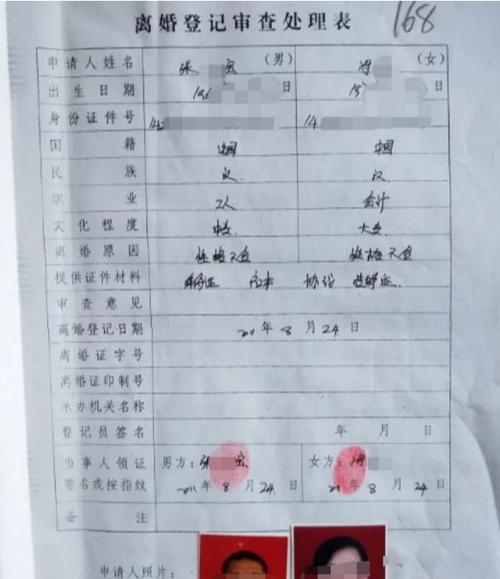 离婚登记审查处理表 168
申请人姓名 张 宏 (男) (女)
出生日期 日 日
身份证件号 14 14
国籍 中国 中国
民族 汉 汉
职业 工人 会计
文化程度 中专 大专
离婚原因 性格不合 性格不合
提供证件材料 身份证 户口本 协议 结婚证
审查意见
离婚登记日期 2011年8月24日
离婚证字号
离婚证印制号
承办机关名称
登记员签名 年 月 日
当事人领证 男方:张 宏 女方:
签名或按指纹 2011年8月24日 2011年8月24日
备注
申请人照片: